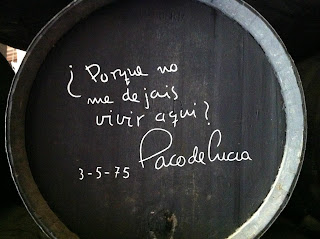 ¿Porque no
me dejais
vivir aqui?
Paco de Lucia
3-5-75